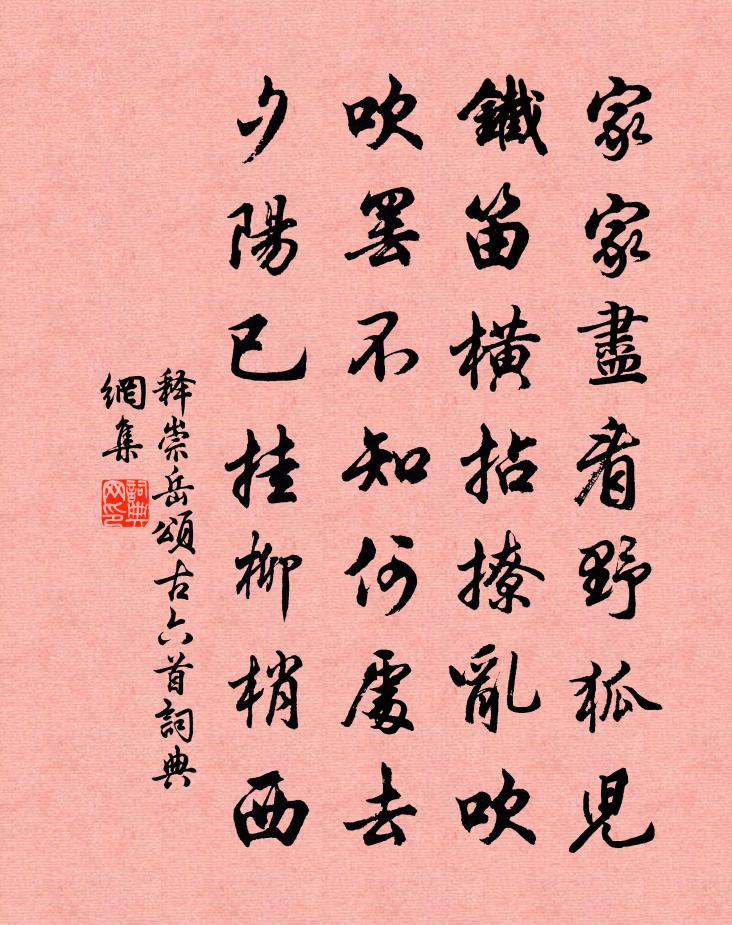 家家盡看野狐兒
鐵笛橫拈撩亂吹
吹罷不知何處去
夕陽已挂柳梢西
释崇岳頌古六首詞典
網集
詞典网印